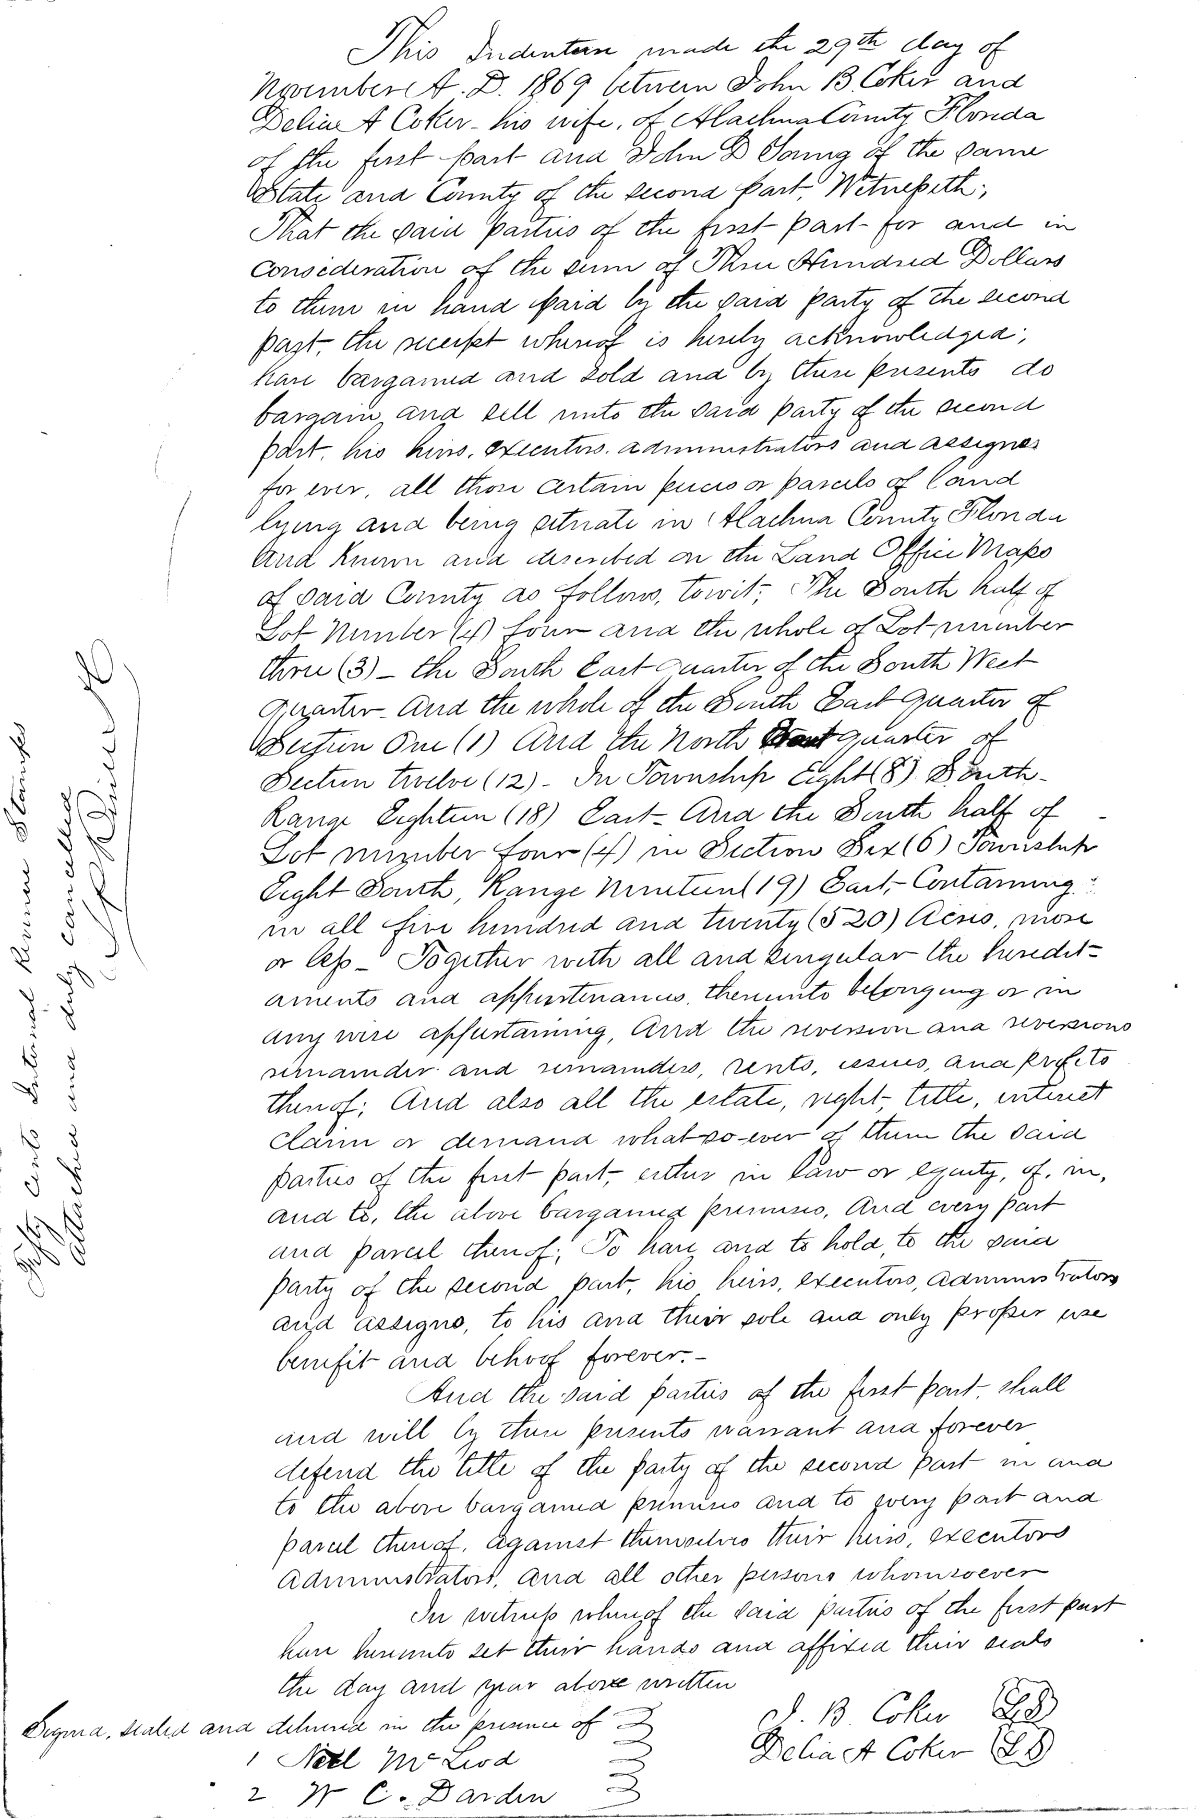 This Indenture made the 29th day of
November A. D. 1869 between John B. Coker and
Delia A Coker his wife, of Alachua County Florida
of the first part and John D Young of the same
State and County of the second part, Witnesseth;
That the said parties of the first part for and in
consideration of the sum of Three Hundred Dollars
to them in hand paid by the said party of the second
part, the receipt whereof is hereby acknowledged;
have bargained and sold and by these presents do
bargain and sell unto the said party of the second
part, his heirs, executors, administrators and assignes
for ever, all those certain pieces or parcels of land
lying and being situate in Alachua County Florida
and known and described on the Land Office Maps
of said County as follows, towit; The South half of
Lot Number (4) four and the whole of Lot number
three (3) – the South East quarter of the South West
quarter – And the whole of the South East quarter of
Section One (1) And the North East quarter of
Section twelve (12) – In Township Eight (8) South –
Range Eighteen (18) East – And the South half of
Lot number four (4) in Section Six (6) Township
Eight South, Range Nineteen (19) East, Containing
in all five hundred and twenty (520) Acres, more
or less – Together with all and singular the heredit=
aments and appurtenances, thereunto belonging or in
any wise appertaining, And the reversion and reversions
remainder and remainders, rents, issues, and profits
thereof; And also all the estate, right, title, interest
claim or demand what-so-ever of them the said
parties of the first part, either in law or equity, of, in,
and to, the above bargained premises, And every part
and parcel thereof; To have and to hold, to the said
party of the second part, his heirs, executors, administrators
and assigns, to his and their sole and only proper use
benefit and behoof forever. –
And the said parties of the first part, shall
and will by these presents warrant and forever
defend the title of the party of the second part in and
to the above bargained premises and to every part and
parcel thereof, against themselves their heirs, executors
administrators, and all other persons whomsoever
In witness whereof the said parties of the first part
have hereunto set their hands and affixed their seals
the day and year above written
Signed, sealed and delivered in the presence of
J. B. Coker LS
1 Neil McLeod
Delia A Coker LS
2 W C. Darden
Fifty cents Internal Revenue Stamps
attached and duly cancelled